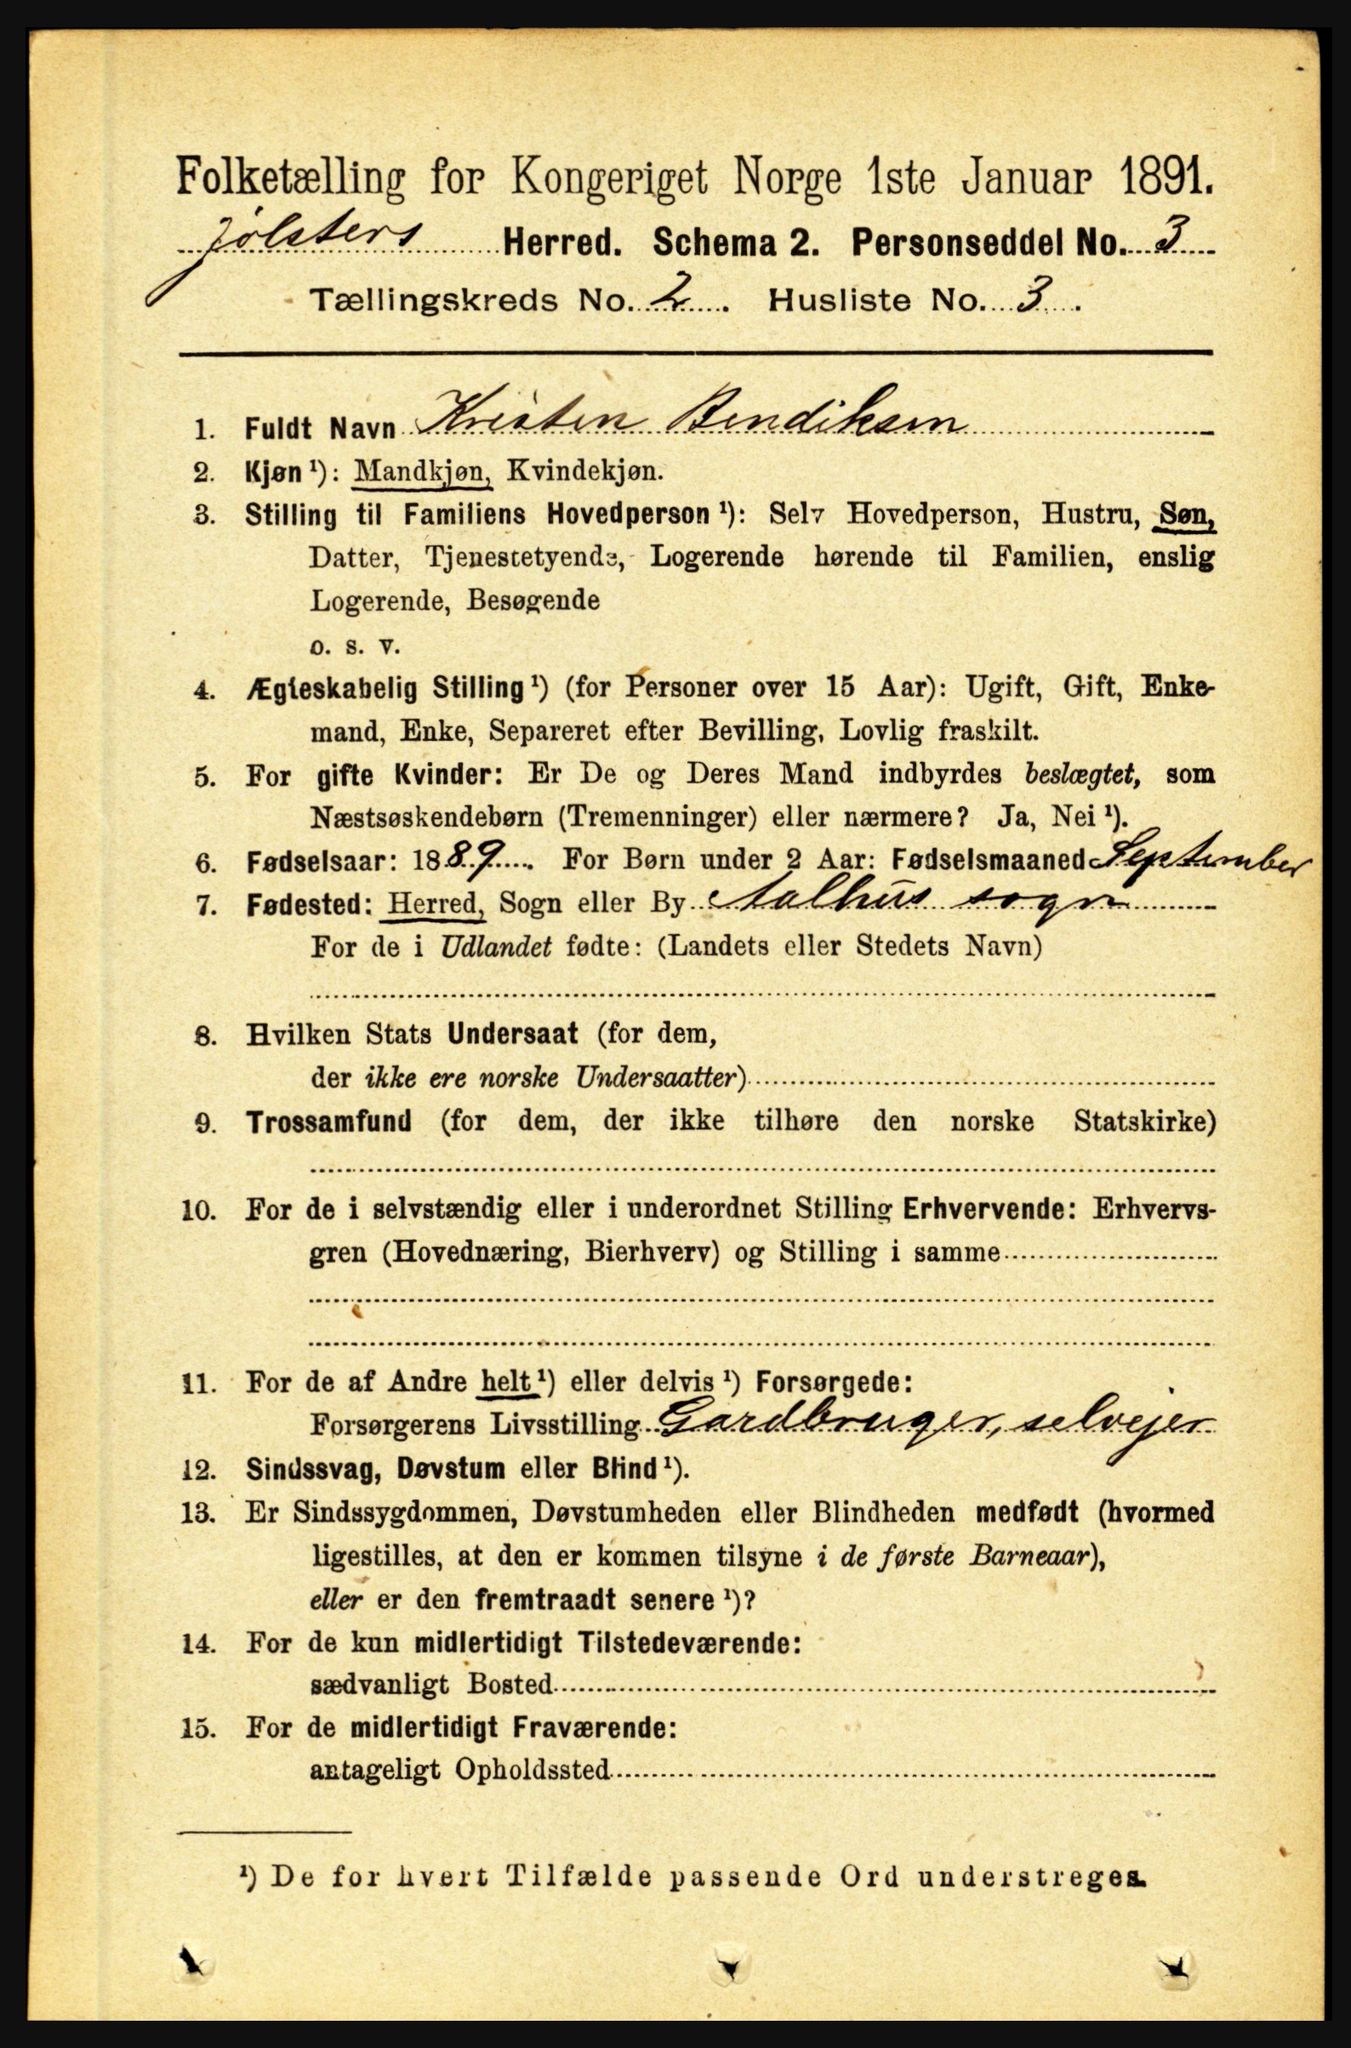 Folketælling for Kongeriget Norge 1ste Januar 1891.
Jølsters Herred. Schema 2. Personseddel No. 3
Tællingskreds No. 2. Husliste No. 3.
1. Fuldt Navn Kristen Bendiksen
2. Kjøn ¹): Mandkjøn, Kvindekjøn.
3. Stilling til Familiens Hovedperson ¹): Selv Hovedperson, Hustru, Søn,
Datter, Tjenestetyende, Logerende hørende til Familien, enslig
Logerende, Besøgende
o. s. v.
4. Ægteskabelig Stilling ¹) (for Personer over 15 Aar): Ugift, Gift, Enke-
mand, Enke, Separeret efter Bevilling, Lovlig fraskilt.
5. For gifte Kvinder: Er De og Deres Mand indbyrdes beslægtet, som
Næstsøskendebørn (Tremenninger) eller nærmere? Ja, Nei ¹).
6. Fødselsaar: 1889. For Børn under 2 Aar: Fødselsmaaned September
7. Fødested: Herred, Sogn eller By Aalhus sogn
For de i Udlandet fødte: (Landets eller Stedets Navn)
8. Hvilken Stats Undersaat (for dem,
der ikke ere norske Undersaatter)
9. Trossamfund (for dem, der ikke tilhøre den norske Statskirke)
10. For de i selvstændig eller i underordnet Stilling Erhvervende: Erhvervs-
gren (Hovednæring, Bierhverv) og Stilling i samme
11. For de af Andre helt ¹) eller delvis ¹) Forsørgede:
Forsørgerens Livsstilling Gardbruger, selvejer
12. Sindssvag, Døvstum eller Blind ¹).
13. Er Sindssygdommen, Døvstumheden eller Blindheden medfødt (hvormed
ligestilles, at den er kommen tilsyne i de første Barneaar),
eller er den fremtraadt senere ¹)?
14. For de kun midlertidigt Tilstedeværende:
sædvanligt Bosted
15. For de midlertidigt Fraværende:
antageligt Opholdssted
¹) De for hvert Tilfælde passende Ord understreges.